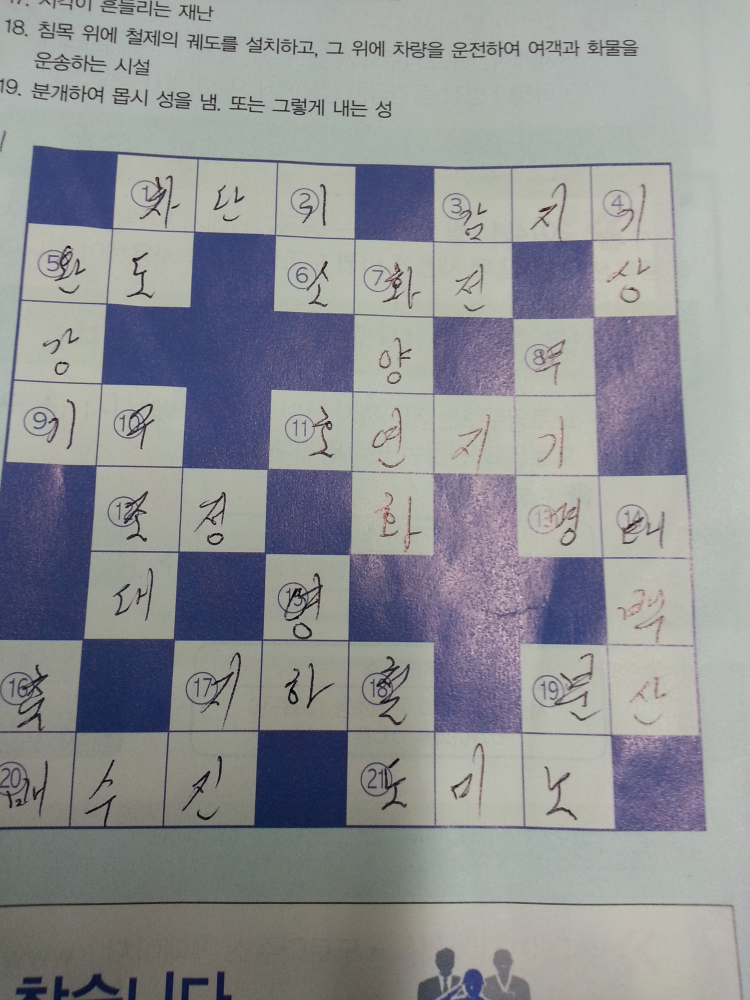 17. 지각이 흔들리는 재난
18. 침목 위에 철제의 궤도를 설치하고, 그 위에 차량을 운전하여 여객과 화물을
운송하는 시설
19. 분개하여 몹시 성을 냄. 또는 그렇게 내는 성
① 차 단 ② 기 ③ 감 지 ④ 기
⑤ 완 도 ⑥ 소 ⑦ 화 전 상
강 양 ⑧ 무
⑨ 기 ⑩ 우 ⑪ 호 연 지 기
⑫ 조 정 화 ⑬ 명 ⑭
대 ⑮ 영 백
⑯ 축 ⑰ 지 하 ⑱ 철 ⑲ 분 산
⑳ 매 수 진 ㉑ 도 미 노